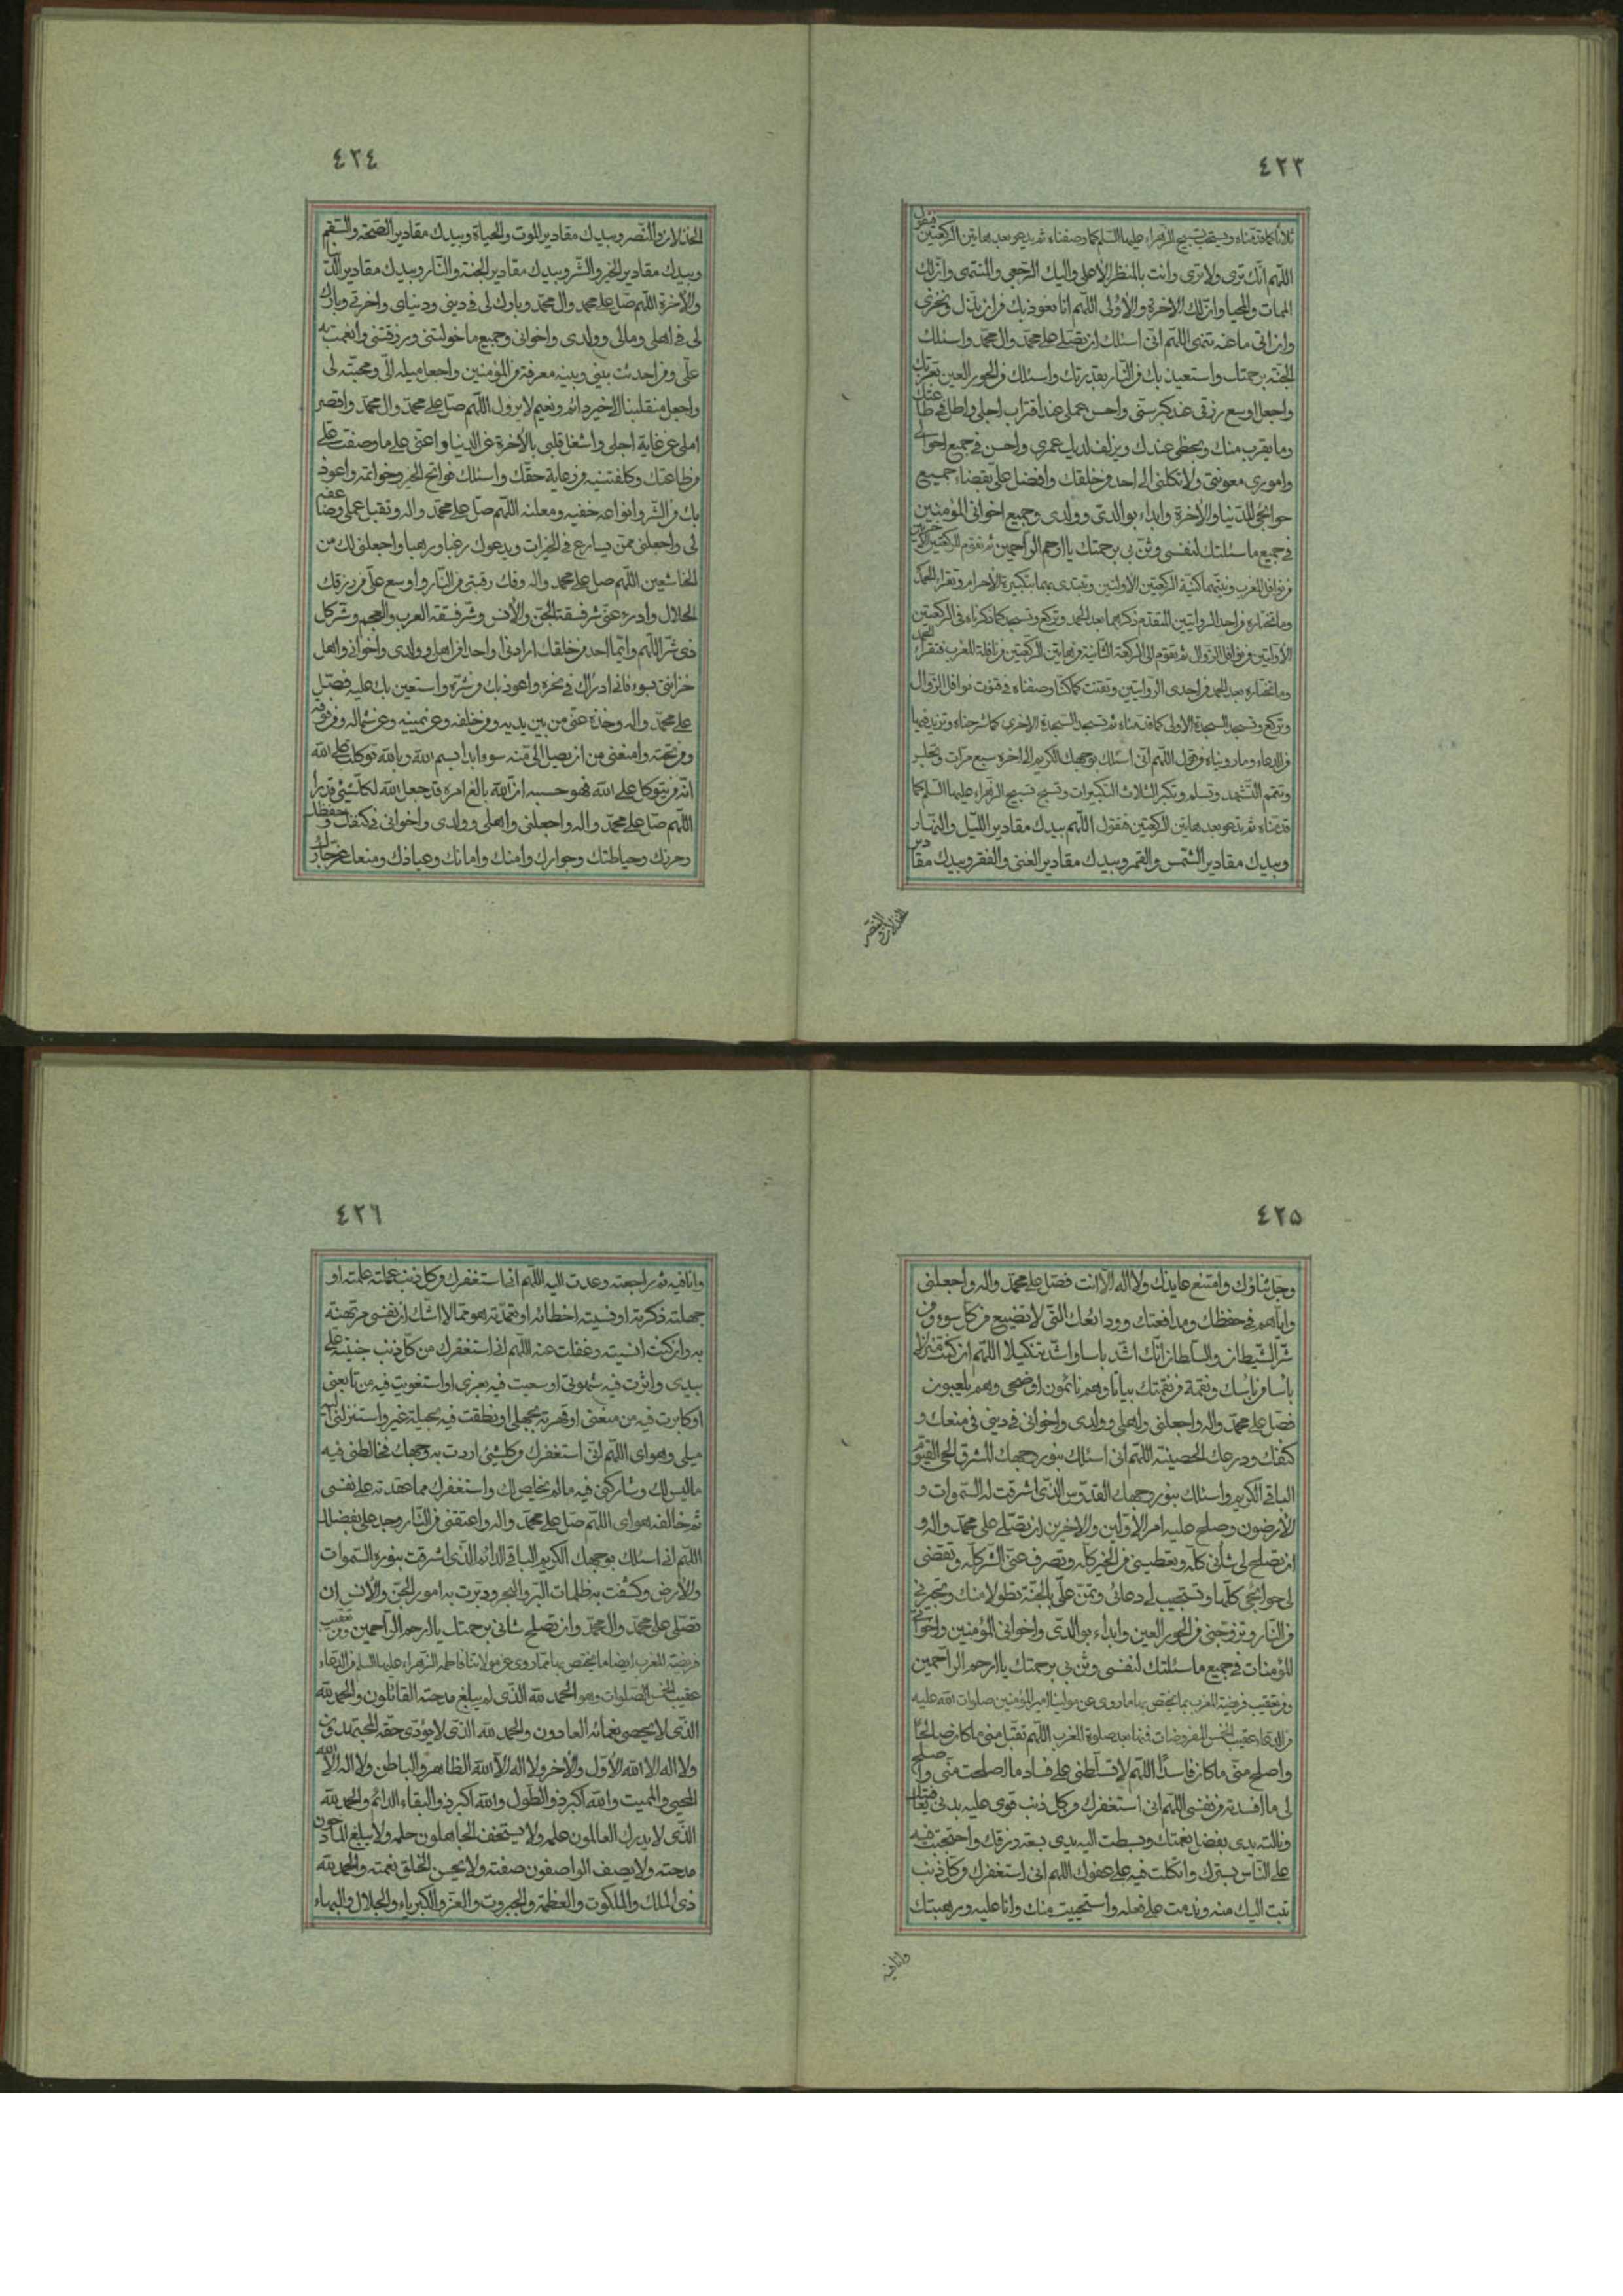 ٤٢٣
ثلاثا كما قدمناه ويستحب تسبيح الزهراء عليها السلم كما وصفناه ثم يدعو بعد هاتين الركعتين فيقول
اللهم انك ترى ولا ترى وانت بالمنظر الاعلى واليك الرجعى والمنتهى وان لك
الممات والمحيا وان لك الاخرة والاولى اللهم انا نعوذ بك من ان نذل ونخزى
وان ناتى ما عنه تنهى اللهم انى اسئلك ان تصلى على محمد وال محمد واسئلك
الجنة برحمتك واستعيذ بك من النار بقدرتك واسئلك من الحور العين بعزتك
واجعل اوسع رزقى عند كبر سنى واحسن عملى عند اقتراب اجلى واطل فى طاعتك
وما يقرب منك ويحظى عندك ويزلف لديك عمرى واحسن فى جميع احوالى
وامورى معونتى ولا تكلنى الى احد من خلقك وافضل على بقضاء جميع
حوائجى للدنيا والاخرة وابداء بوالدى وولدى وجميع اخوانى المؤمنين
فى جميع ما سئلتك لنفسى وثن بى برحمتك يا ارحم الراحمين ثم تقوم للركعتين الاخريين
من نوافل المغرب ونيتهما كنية الركعتين الاولتين وتبتدى بهما بتكبيرة الاحرام وتقراء الحمد
وما تختاره من احد الروايتين المتقدم ذكرهما بعد الحمد وتركع وتسجد كما ذكرناه فى الركعتين
الاولتين من نوافل الزوال ثم تقوم الى الركعة الثانية من هاتين الركعتين من نافلة المغرب فتقراء الحمد
وما تختاره بعد الحمد من احدى الروايتين وتقنت كما كنا وصفناه فى قنوت نوافل الزوال
وتركع وتسجد السجدة الاولى كما قدمناه ثم تسجد السجدة الاخرى كما شرحناه وتزيد فيها
من الدعاء وما رويناه وهو اللهم انى اسئلك بوجهك الكريم الى اخره سبع مرات وتجلس
وتتمم التشهد وتسلم وتكبر الثلاث التكبيرات وتسبح تسبيح الزهراء عليها السلم كما
قدمناه ثم يدعو بعد هاتين الركعتين فتقول اللهم بيدك مقادير الليل والنهار
وبيدك مقادير الشمس والقمر وبيدك مقادير الغنى والفقر وبيدك مقادير
الخذلان والنصر
٤٢٤
الخذلان والنصر وبيدك مقادير الموت والحياة وبيدك مقادير الصحة والسقم
وبيدك مقادير الخير والشر وبيدك مقادير الجنة والنار وبيدك مقادير الدنيا
والاخرة اللهم صل على محمد وال محمد وبارك لى فى دينى ودنياى واخرتى وبارك
لى فى اهلى ومالى وولدى واخوانى وجميع ما خولتنى ورزقتنى وانعمت به
على ومن احدثت بينى وبينه معرفة من المؤمنين واجعل ميله الى ومحبته لى
واجعل منقلبنا الى خير دائم ونعيم لا يزول اللهم صل على محمد وال محمد واقصر
املى عن غاية اجلى واشغل قلبى بالاخرة عن الدنيا واعنى على ما وظفت على
من طاعتك وكلفتنيه من رعاية حقك واسئلك فواتح الخير وخواتمه واعوذ
بك من الشر وانواعه خفيه ومعلنه اللهم صل على محمد واله وتقبل عملى وضاعفه
لى واجعلنى ممن يسارع فى الخيرات ويدعوك رغبا ورهبا واجعلنى لك من
الخاشعين اللهم صل على محمد واله وفك رقبتى من النار واوسع على من رزقك
الحلال وادرء عنى شر فسقة الجن والانس وشر فسقة العرب والعجم وشر كل
ذى شر اللهم وايما احد من خلقك ارادنى او احدا من اهلى وولدى واخوانى واهل
حزانتى بسوء فانى ادرأك فى نحره واعوذ بك من شره واستعين بك عليه فصل
على محمد واله وخذه عنى من بين يديه ومن خلفه وعن يمينه وعن شماله ومن فوقه
ومن تحته وامنعنى من ان يصل الى منه سوء ابدا بسم الله وبالله توكلت على الله
انه من يتوكل على الله فهو حسبه ان الله بالغ امره قد جعل الله لكل شئ قدرا
اللهم صل على محمد واله واجعلنى واهلى وولدى واخوانى فى كنفك وحفظك
وحرزك وحياطتك وجوارك وامنك وامانك وعياذك ومنعك عز جارك
٤٢٥
وجل ثناؤك وامتنع عائذك ولا اله الا انت فصل على محمد واله واجعلنى
واياهم فى حفظك ومدافعتك وودائعك التى لا تضييع من كل سوء ومن
شر الشيطان والسلطان انك اشد باسا واشد تنكيلا اللهم ان كنت منزلا
باسا من باسك ونقمة من نقمتك بياتا وهم نائمون او ضحى وهم يلعبون
فصل على محمد واله واجعلنى واهلى وولدى واخوانى فى دينى فى منعك و
كنفك ودرعك الحصينة اللهم انى اسئلك بنور وجهك المشرق الحى القيوم
الباقى الكريم واسئلك بنور وجهك القدوس الذى اشرقت له السموات و
الارضون وصلح عليه امر الاولين والاخرين ان تصلى على محمد واله و
ان تصلح لى شأنى كله وتعطينى من الخير كله وتصرف عنى الشر كله وتقضى
لى حوائجى كلها وتستجيب لى دعائى وتمن على بالجنة تطولا منك وتجيرنى
من النار وتزوجنى من الحور العين وابداء بوالدى واخوانى المؤمنين واخواتى
المؤمنات فى جميع ما سئلتك لنفسى وثن بى برحمتك يا ارحم الراحمين
ومن تعقيب فريضة المغرب بما يختص بها ما روى عن مولينا امير المؤمنين صلوات الله عليه
من الدعاء عقيب الخمس المفروضات فمنها بعد صلوة المغرب اللهم تقبل منى ما كان صالحا
واصلح منى ما كان فاسدا اللهم لا تسلطنى على فساد ما اصلحت منى واصلح
لى ما افسدته من نفسى اللهم انى استغفرك من كل ذنب قوى عليه بدنى بعافيتك
ونالته يدى بفضل نعمتك وبسطت اليه يدى بسعة رزقك واحتجبت فيه
على الناس بسترك واتكلت فيه على عفوك اللهم انى استغفرك من كل ذنب
تبت اليك منه وندمت على فعله واستحييت منك وانا عليه ورهبتك
وانا فيه
٤٢٦
وانا فيه ثم راجعته وعدت اليه اللهم انى استغفرك من كل ذنب عملته علمته او
جهلته ذكرته او نسيته اخطاته او تعمدته هو مما لا اشك ان نفسى مرتهنة
به وان كنت انسيته وغفلت عنه اللهم انى استغفرك من كل ذنب جنيته على
بيدى واثرت فيه شهوتى او سعيت فيه لغيرى او استغويت فيه من تابعنى
او كابرت فيه من منعنى او قهرته بجهلى او نطقت فيه بحيلة غيرى او استزلنى اليه
ميلى وهواى اللهم انى استغفرك من كل شئ اردت به وجهك فخالطنى فيه
ما ليس لك وشاركنى فيه ما لم يخلص لك واستغفرك مما عقدته على نفسى
ثم خالفه هواى اللهم صل على محمد واله واعتقنى من النار وجد على بفضلك
اللهم انى اسئلك بوجهك الكريم الباقى الدائم الذى اشرقت بنوره السموات
والارض وكشفت به ظلمات البر والبحر ودبرت به امور الجن والانس ان
تصلى على محمد وال محمد وان تصلح شانى برحمتك يا ارحم الراحمين ومن تعقيب
فريضة المغرب ايضا ما يختص بها مما روى عن مولاتنا فاطمة الزهراء عليها السلم من الدعاء
عقيب الخمس الصلوات وهو الحمد لله الذى لم يبلغ مدحته القائلون والحمد لله
الذى لا يحصى نعمائه العادون والحمد لله الذى لا يؤدى حقه المجتهدون
ولا اله الا الله الاول والاخر ولا اله الا الله الظاهر والباطن ولا اله الا الله
المحيى والمميت والله اكبر ذو الطول والله اكبر ذو البقاء الدائم والحمد لله
الذى لا يدرك العالمون علمه ولا يستخف الجاهلون حلمه ولا يبلغ المادحون
مدحته ولا يصف الواصفون صفته ولا يحسن الخلق نعته والحمد لله
ذى الملك والملكوت والعظمة والجبروت والعز والكبرياء والجلال والبهاء